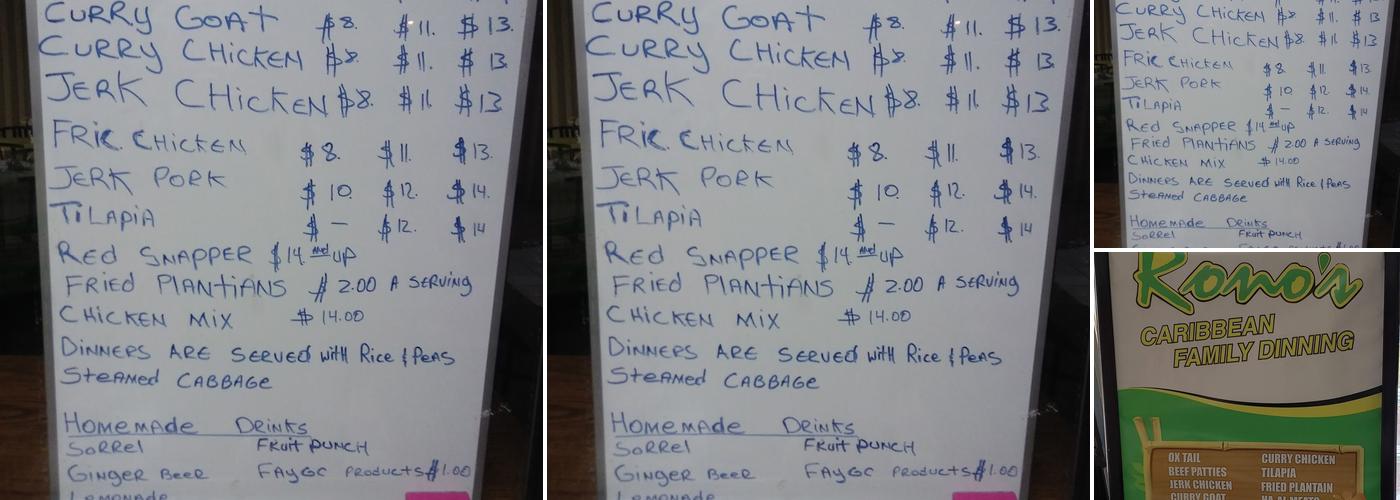 CURRY GOAT $8. $11. $13.
CURRY CHICKEN $8. $11. $13.
JERK CHICKEN $8. $11. $13
FRIC. CHICKEN $8. $11. $13.
JERK PORK $10. $12. $14.
TILAPIA $— $12. $14
RED SNAPPER $14 and UP
FRIED PLANTIANS $2.00 A SERVING
CHICKEN MIX $14.00
DINNERS ARE SERVED with Rice & Peas
STEAMED CABBAGE
Homemade Drinks
SORREL FRUIT PUNCH
GINGER BEER FAYGO PRODUCTS $1.00
LEMONADE
CURRY GOAT $8. $11. $13.
CURRY CHICKEN $8. $11. $13.
JERK CHICKEN $8. $11. $13
FRIC. CHICKEN $8. $11. $13.
JERK PORK $10. $12. $14.
TILAPIA $— $12. $14
RED SNAPPER $14 and UP
FRIED PLANTIANS $2.00 A SERVING
CHICKEN MIX $14.00
DINNERS ARE SERVED with Rice & Peas
STEAMED CABBAGE
Homemade Drinks
SORREL FRUIT PUNCH
GINGER BEER FAYGO PRODUCTS $1.00
LEMONADE
CURRY CHICKEN $8 $11. $13
JERK CHICKEN $8. $11 $13
FRIC CHICKEN $8. $11. $13.
JERK PORK $10 $12. $14.
TILAPIA $— $12. $14
RED SNAPPER $14 and UP
FRIED PLANTIANS $2.00 A SERVING
CHICKEN MIX $14.00
DINNERS ARE SERVED with Rice & Peas
STEAMED CABBAGE
Homemade Drinks
SORREL FRUIT PUNCH
Rono's
CARIBBEAN
FAMILY DINNING
OX TAIL CURRY CHICKEN
BEEF PATTIES TILAPIA
JERK CHICKEN FRIED PLANTAIN
CURRY GOAT